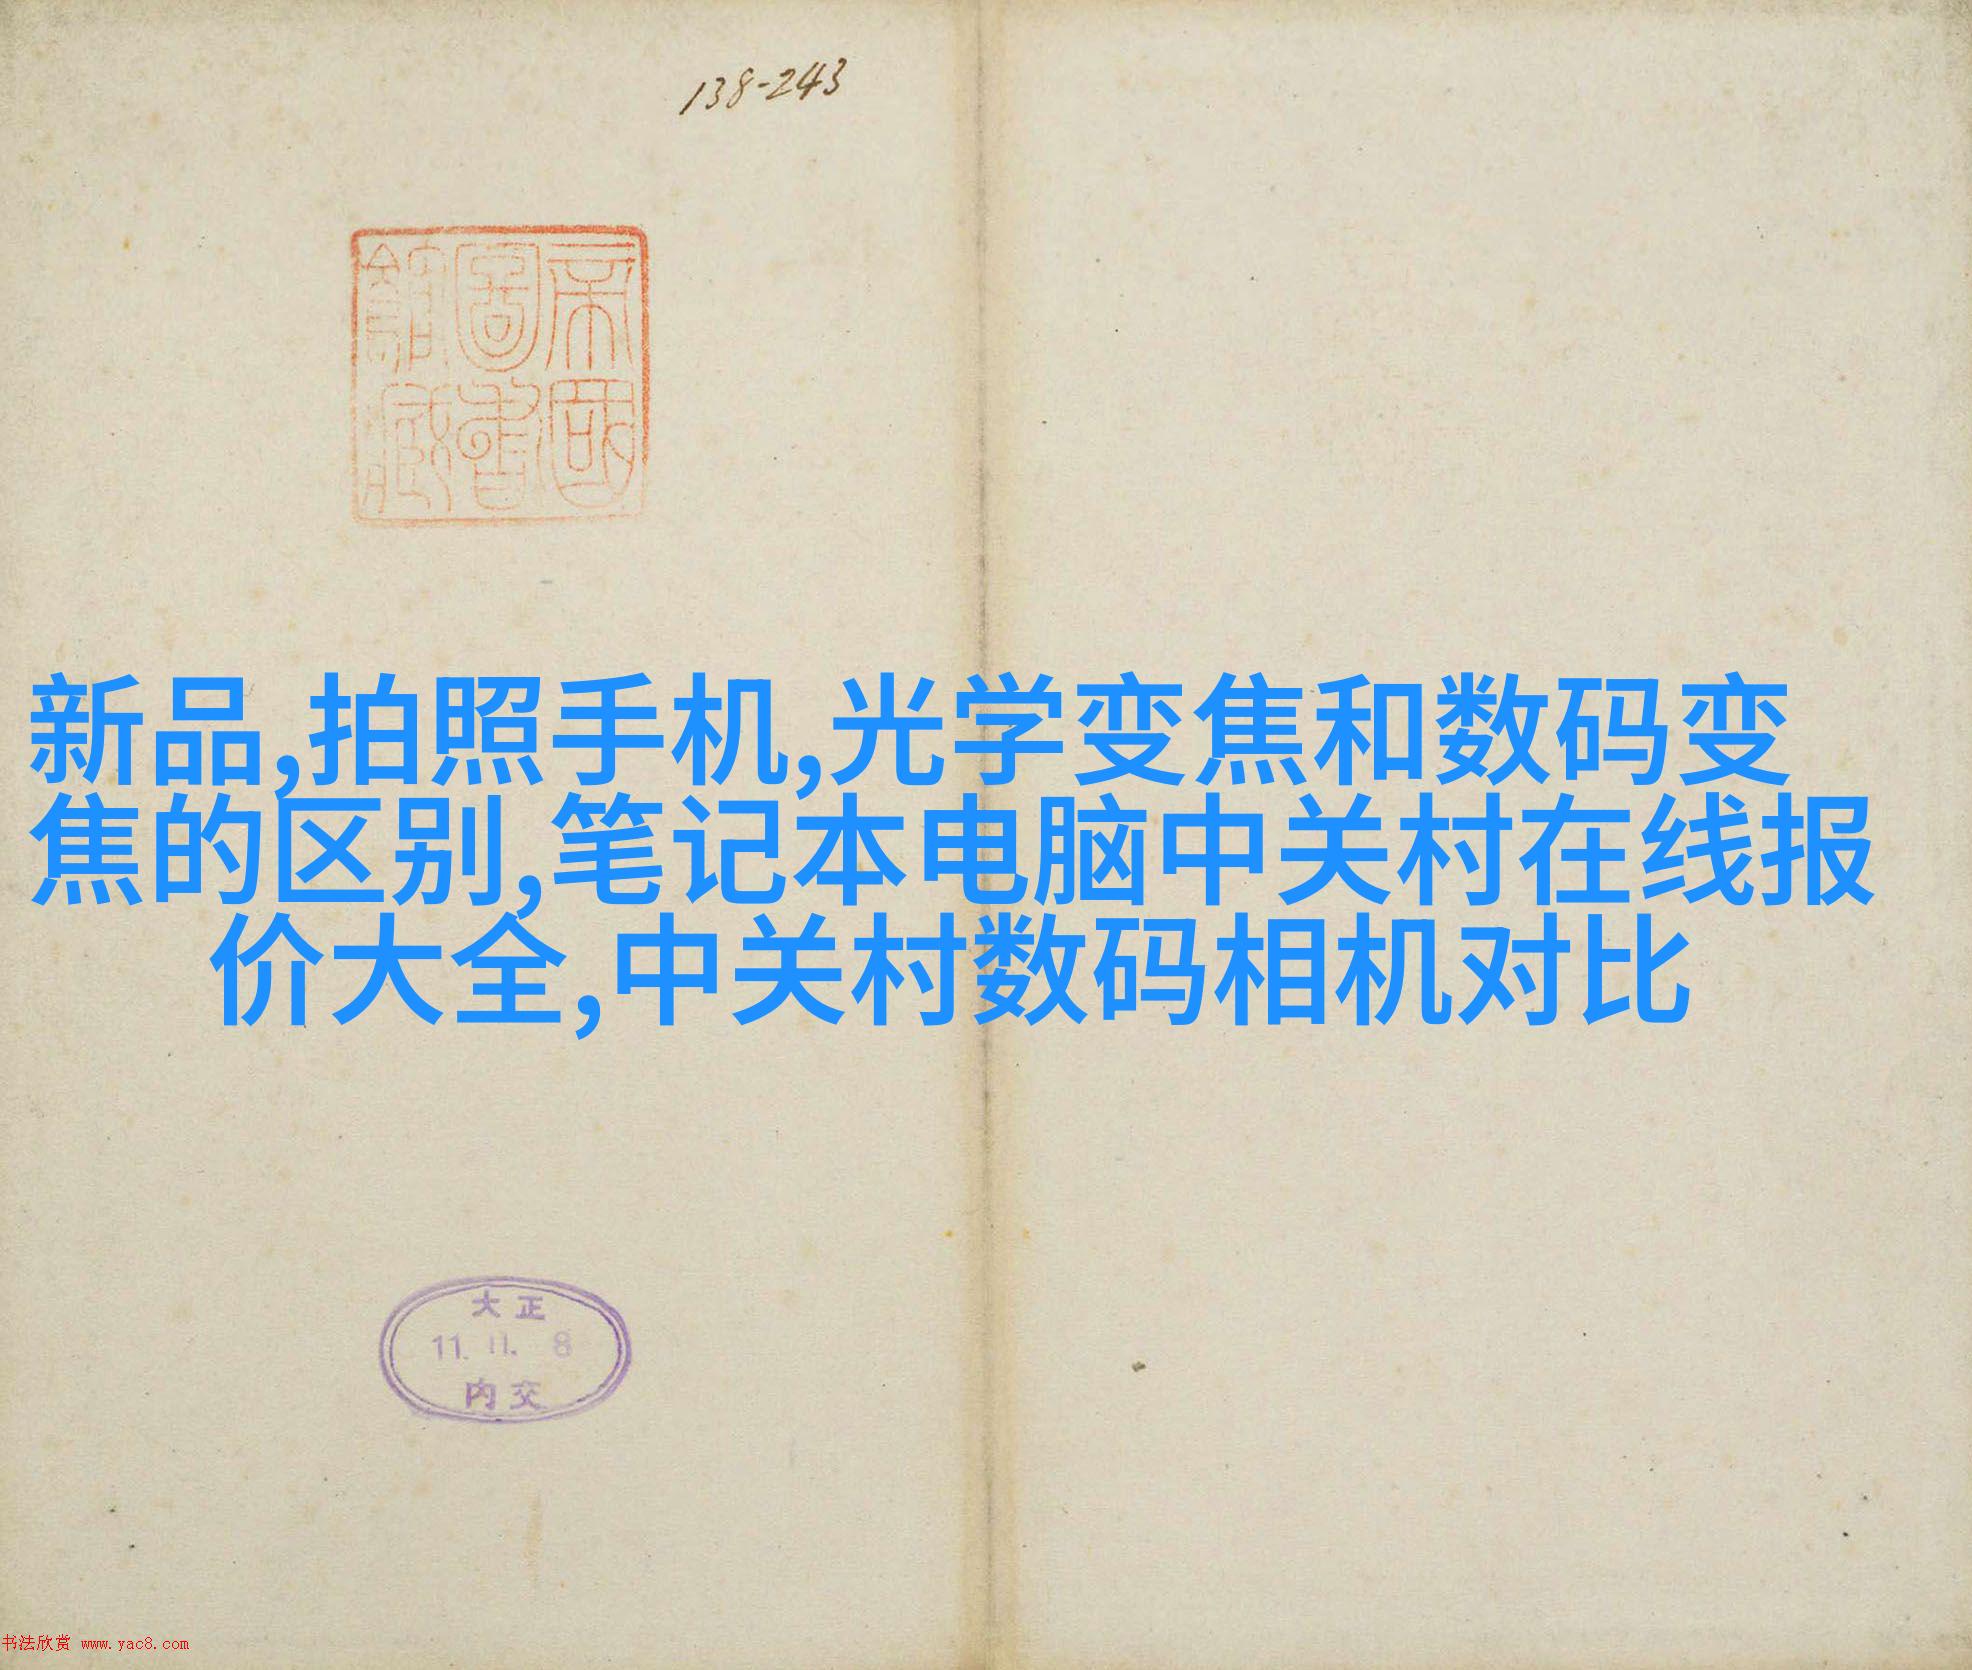 138-243
帝國
圖書
館藏
新品,拍照手机,光学变焦和数码变
焦的区别,笔记本电脑中关村在线报
价大全,中关村数码相机对比
大正
11. 11. 8
内交
书法欣赏 www.yac8.com